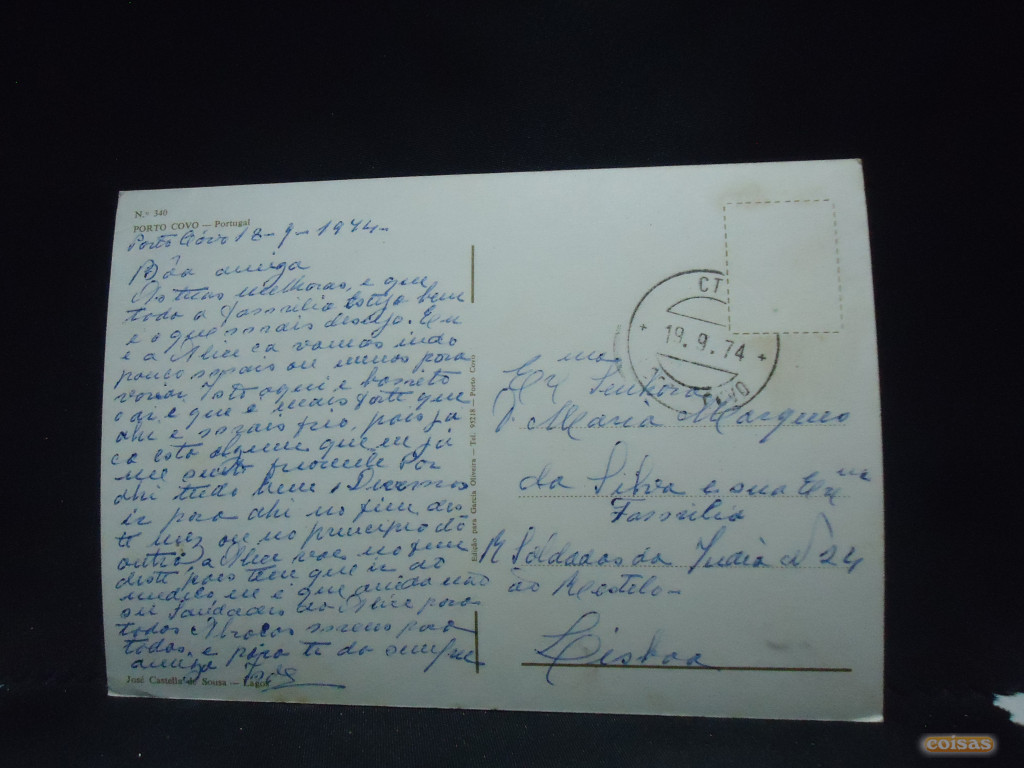 N.º 340
PORTO COVO — Portugal
Porto Côvo 18-9-1974-
Bôa amiga
As tuas melhoras, e que
toda a Familia esteja bem
e o que mais desejo. Eu
e a Alice ca vamos indo
pouco mais ou menos para
variar. Isto aqui e bonito
o ar e que e mais forte que
ahi e mais frio, pois ja
ca esta alguem que eu já
me sinto Por
ahi tudo bem
ir para ahi no fim des
te mez ou no principio do
outro, a Alice vae no fim
deste pois tem que ir ao
medico, eu e que ainda não
sei Saudades da Alice para
todos Abraços meus para
todos, e para ti da sempre
amiga
José Castella de Sousa — Lagos
Edição para Garcia Oliveira — Tel. 95218 — Porto Covo
CT
19.9.74
Exma Senhora
D. Maria Marques
da Silva e sua Exma
Familia
R Soldados da India Nº 24
ao Restelo -
Lisboa
coisas